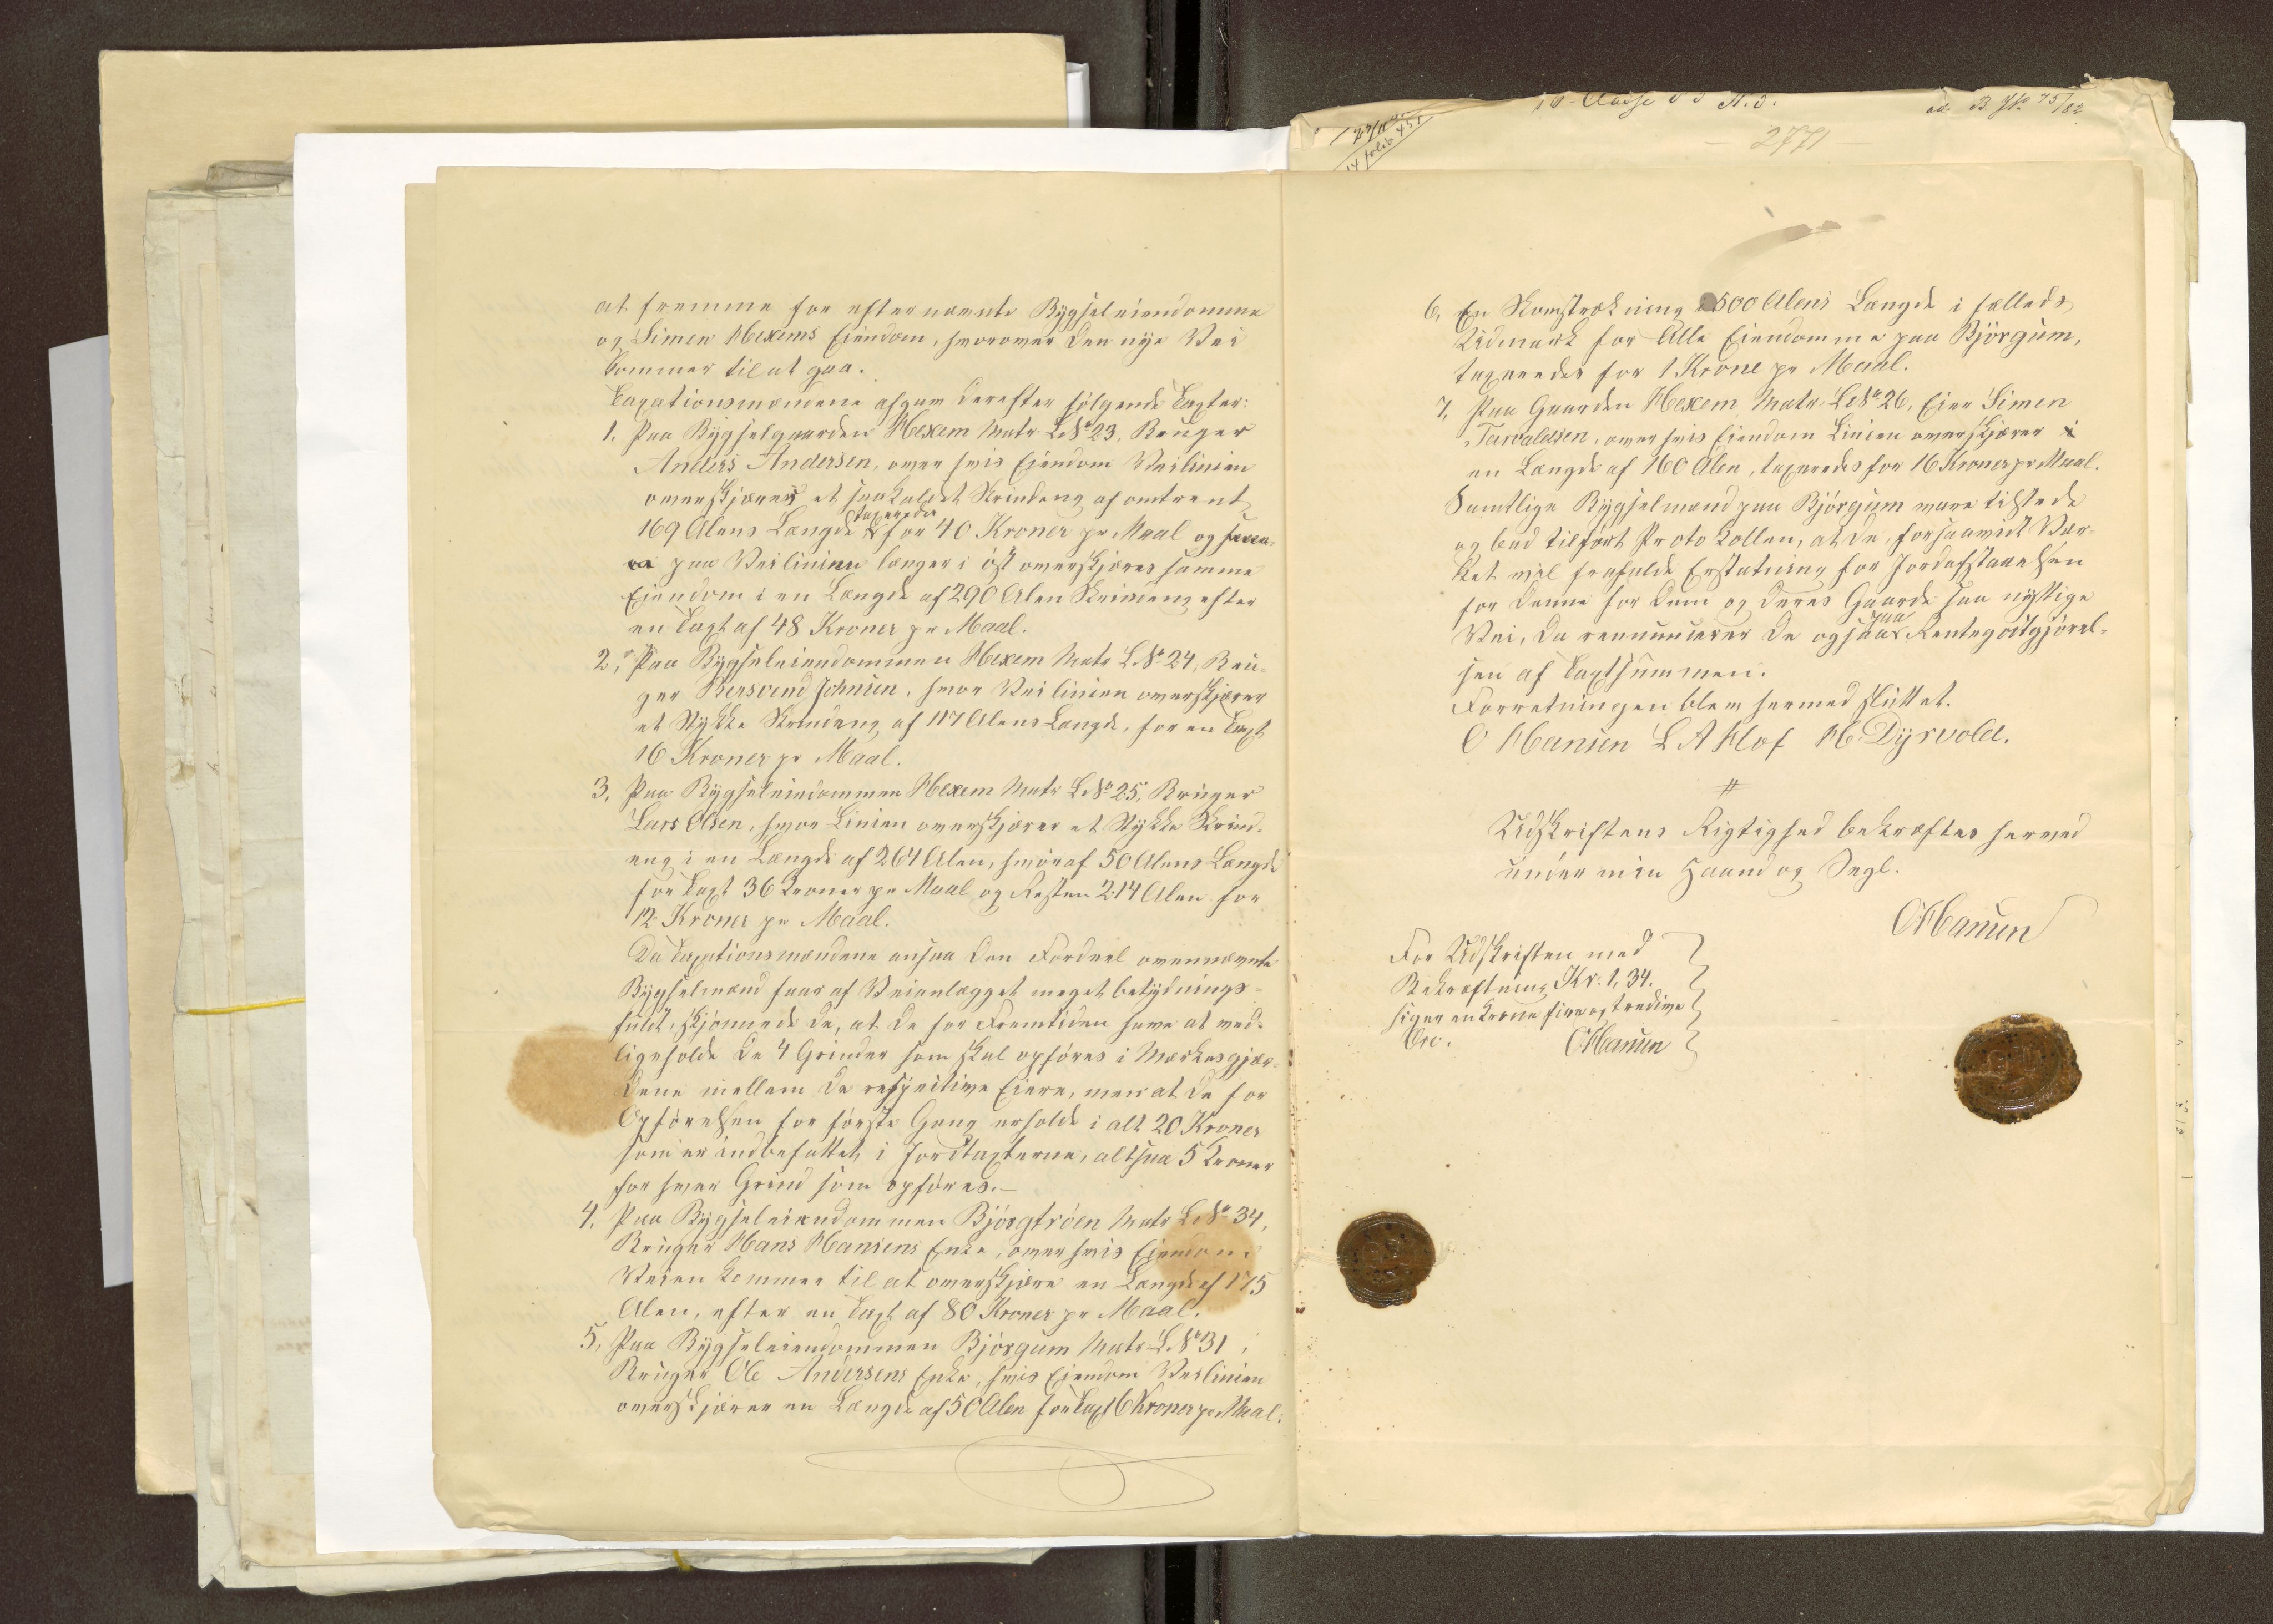 at fremme for efternævnte Bygseleiendomme
og Simen Hexems Eiendom, hvorover den nye Vei
kommer til at gaa.
Taxationsmændene afgav derefter følgende Taxter:
1, Paa Bygselgaarden Hexem Matr LNo 23, Bruger
Anders Andersen, over hvis Eiendom Veilinien
overskjærer et saakaldet Strindeng af omtrent
taxeredes
169 Alens Længde for 40 Kroner pr Maal og
paa Veilinien længer i øst overskjæres samme
Eiendom i en Længde af 290 Alen Strindeng efter
en Taxt af 48 Kroner pr Maal.
2, Paa Bygseleiendommen Hexem Matr LNo 24, Bru-
ger Bersvend Johnsen, hvor Veilinien overskjærer
et Stykke Strindeng af 117 Alens Længde, for en Taxt
16 Kroner pr Maal.
3, Paa Bygseleiendommen Hexem Matr LNo 25, Bruger
Lars Olsen, hvor Linien overskjærer et Stykke Strind-
eng i en Længde af 264 Alen, hvoraf 50 Alens Længde
for Taxt 36 Kroner pr Maal og Resten 214 Alen for
12 Kroner pr Maal.
Da Taxationsmændene ansaa den Fordeel ovennævnte
Bygselmænd faar af Veianlægget meget betydnings-
fuldt, skjønnede de, at de for Fremtiden have at ved-
ligeholde de 4 Grinder som skal opføres i Mærkesgjær-
dene mellem de respective Eiere, men at de for
Opførelsen for første Gang erholde i alt 20 Kroner
som er indbefattet i Jordtaxterne, altsaa 5 Kroner
for hver Grind som opføres.-
4, Paa Bygseleiendommen Bjørgtrøen Matr LNo 34,
Bruger Hans Hansens Enke, over hvis Eiendom
Veien kommer til at overskjære en Længde af 175
Alen, efter en Taxt af 80 Kroner pr Maal.
5, Paa Bygseleiendommen Bjørgum Matr LNo 31,
Bruger Ole Andersens Enke, hvis Eiendom Veilinien
overskjærer en Længde af 50 Alen for Taxt 6 Kroner pr Maal.
10- A.3. ad. B. JNo 75/82
folio 451
- 2771 -
6, En Komstrækning 2500 Alens Længde i fælleds
Udmark for Alle Eiendomme paa Bjørgum,
taxeredes for 1 Krone pr Maal.
7, Paa Gaarden Hexem Matr LNo 26, Eier Simen
Tarvaldsen, over hvis Eiendom Linien overskjærer i
en Længde af 160 Alen, taxeredes for 16 Kroner pr Maal.
Samtlige Bygselmænd paa Bjørgum vare tilstede
og bad tilført Protokollen, at de, forsaavidt Vær-
ket vil frafalde Erstatning for Jordafstaaelsen
for denne for dem og deres Gaarde saa nyttige
paa
Vei, da renuncerer de ogsaa Rentegodtgjørel-
sen af Taxtsummen.
Forretningen blev hermed sluttet.
O Hansen L A Hof H. Dyrvold.
#
Udskriftens Rigtighed bekræftes herved
under min Haand og Segl.
O Hansen
For Udskriften med
Bekræftning Kr. 1,34.
siger en Krone fire og tredive
Øre. O Hansen